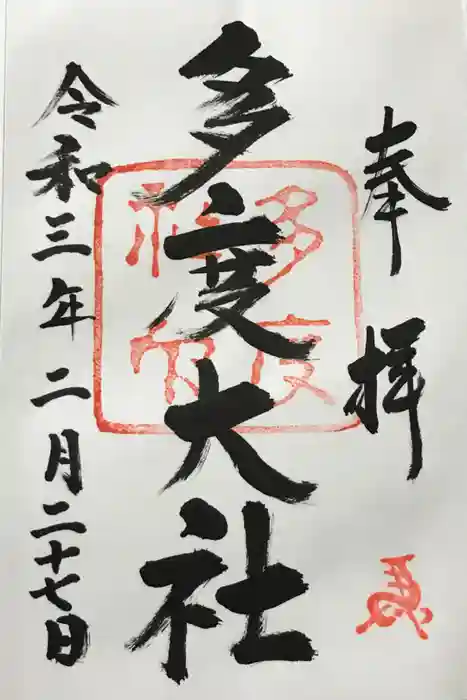 奉拝
多度大社
多度
神宮
令和三年二月二十七日